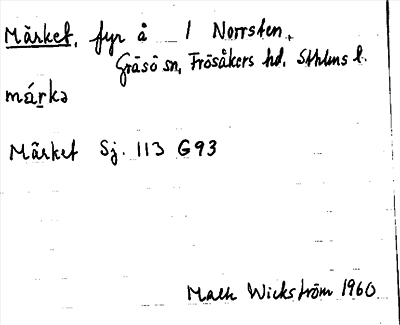 Märket, fyr å / Norrsten,
Gräsö sn, Frösåkers hd, Sthlms l.
márkə
Märket Sj. 113 G93
Wickström 1960